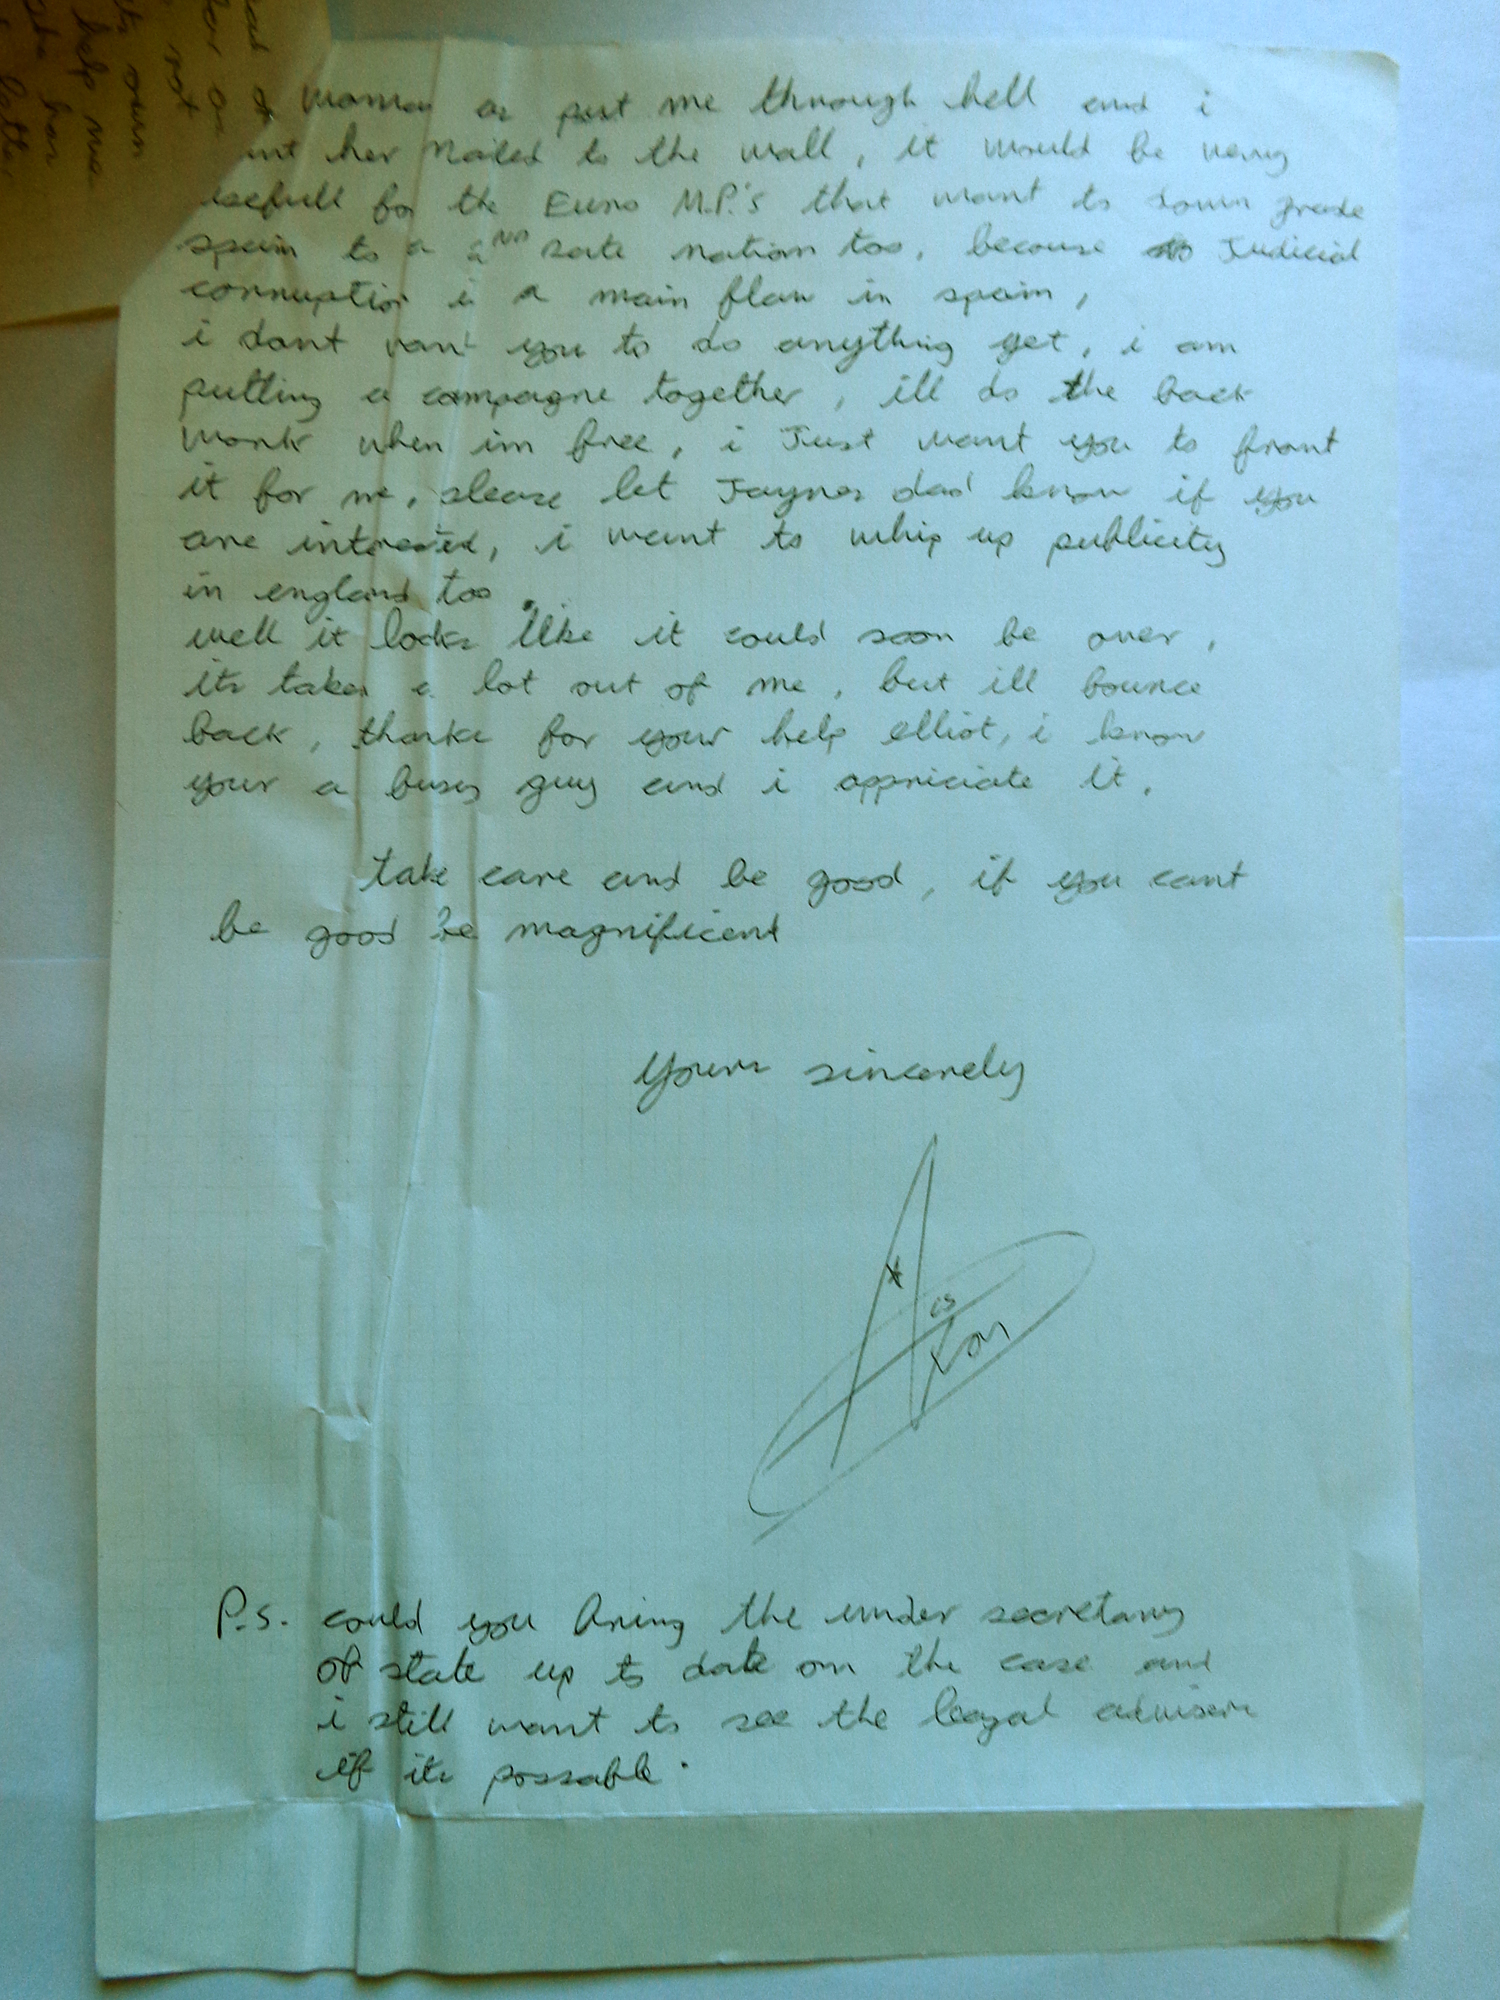 woman as put me through hell and i
her Nailed to the wall, it would be very
usefull for the Euro M.P.'s that want to down grade
spain to a 2ND rate nation too, because Judicial
corruption is a main flaw in spain,
i dont want you to do anything yet, i am
putting a campagne together, ill do the back
work when im free, i Just want you to front
it for me, please let Jaynes dad know if you
are intrested, i want to whip up publicity
in england too.
well it looks like it could soon be over,
its taken a lot out of me, but ill bounce
back, thanks for your help elliot, i know
your a busy guy and i appriciate it.
take care and be good, if you cant
be good be magnificent
Yours sincerely
P.S. could you bring the under secretary
of state up to date on the case and
i still want to see the leagal adviser
if its possable.
help me